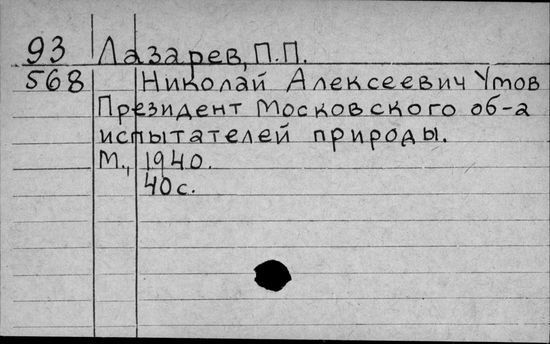 93 Лазарев, П.П.
568 Николай Алексеевич Умов
Президент Московского об-а
испытателей природы.
М., 1940.
40 с.